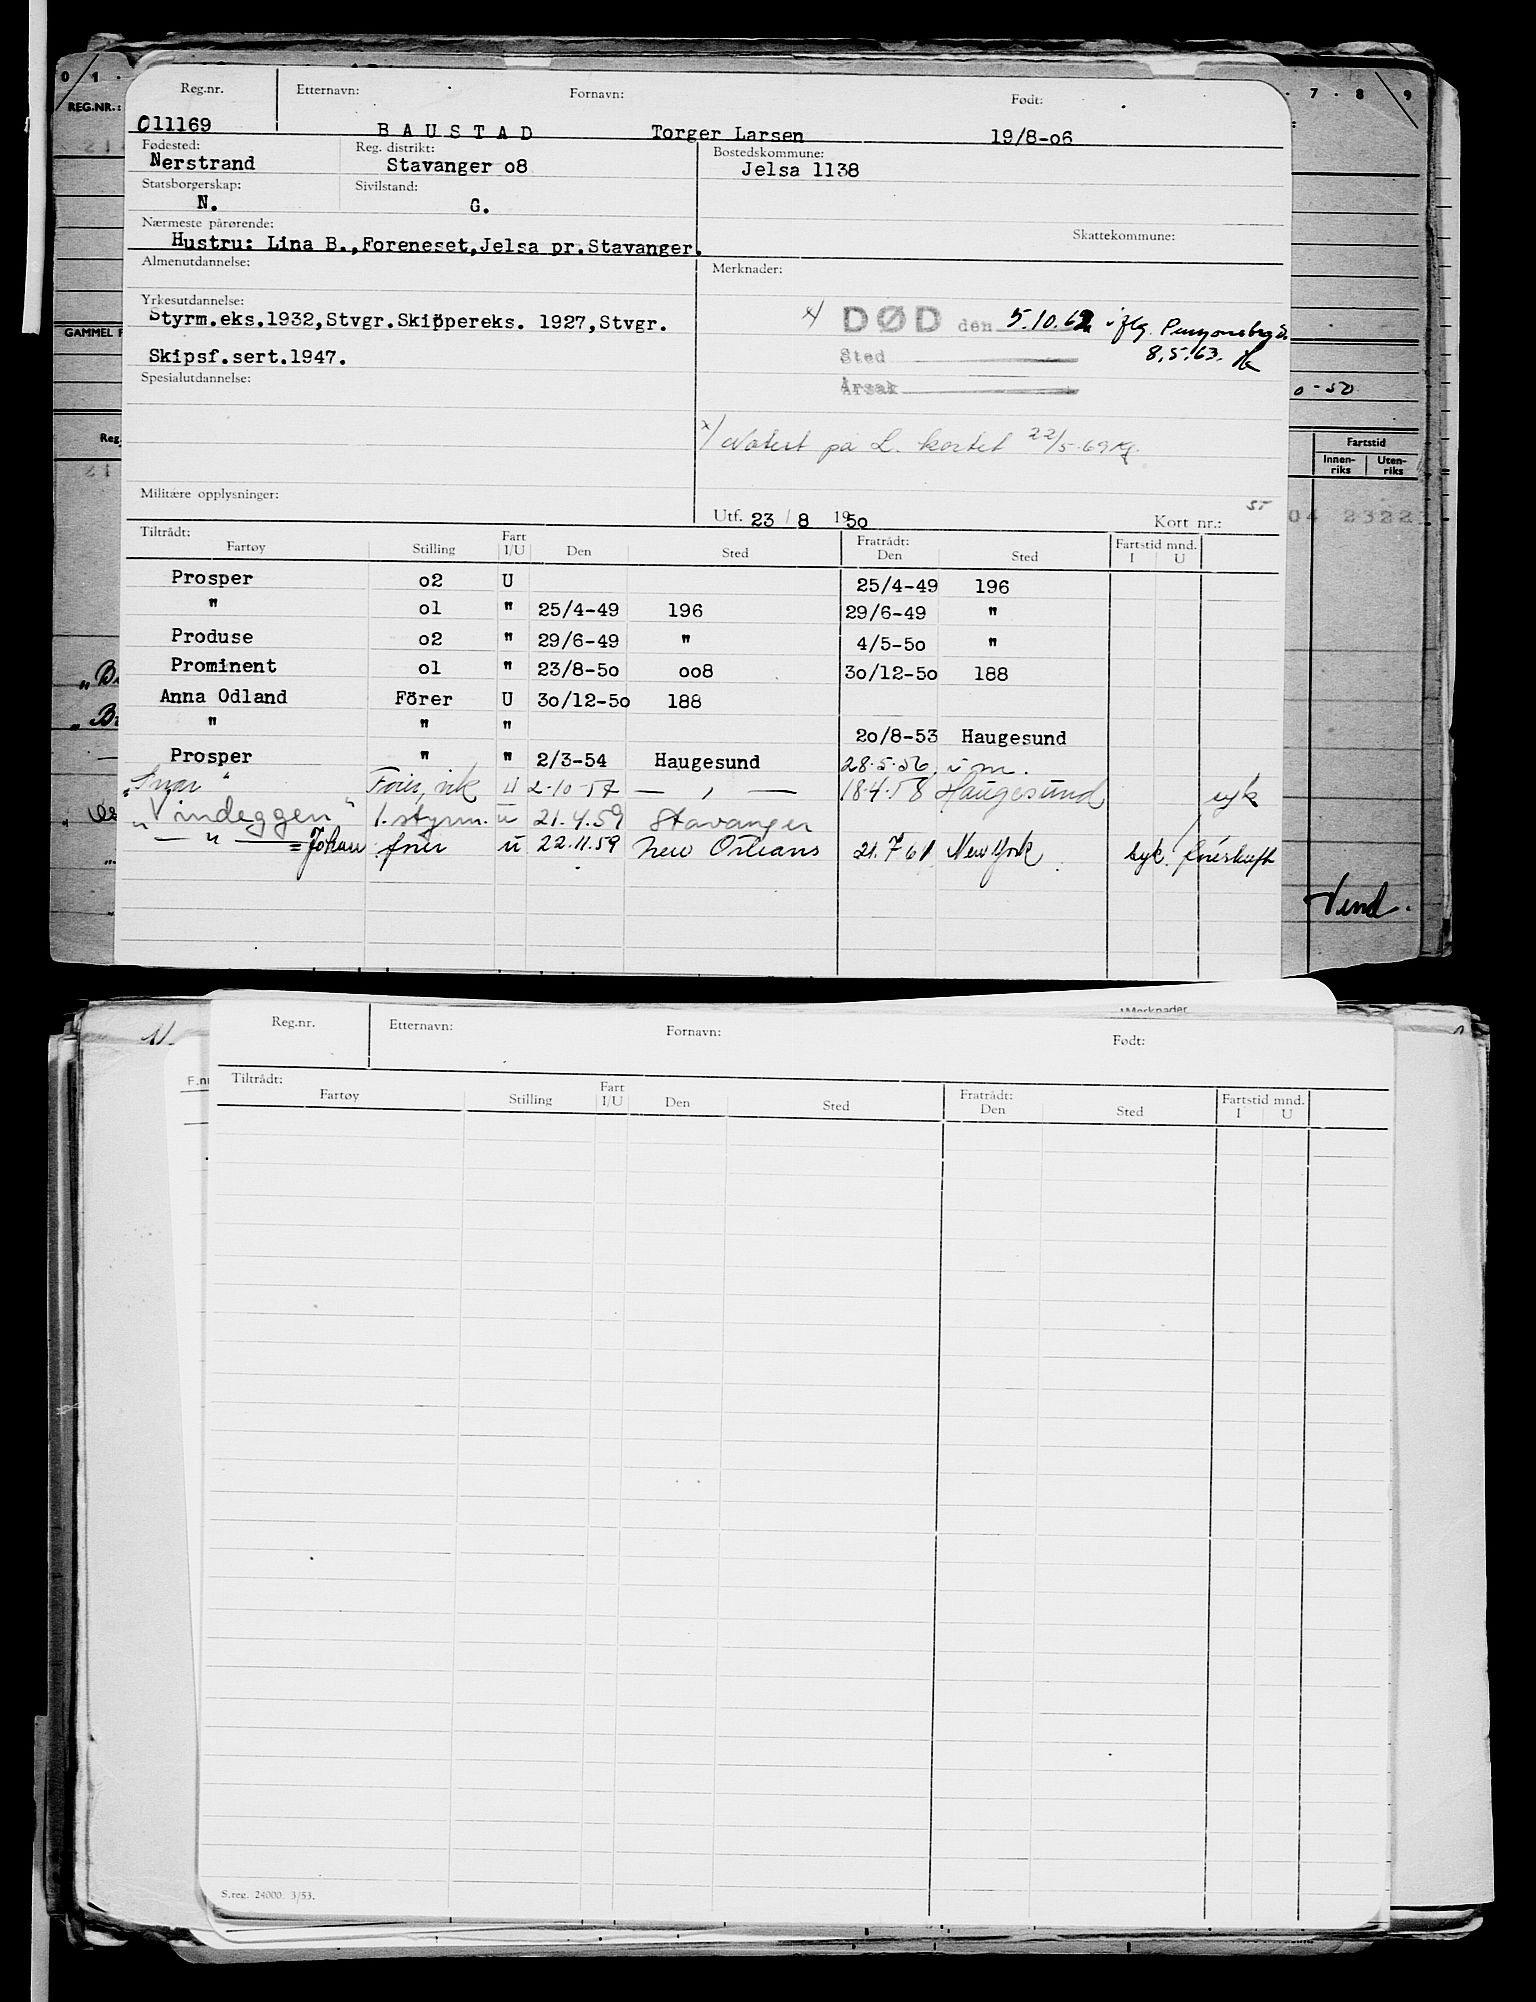 0 1 7 8 9
REG.NR.:
Reg.nr. Etternavn: Fornavn: Født:
011169 BAUSTAD Torger Larsen 19/8-o6
Fødested: Reg. distrikt: Bostedskommune:
Nerstrand Stavanger o8 Jelsa 1138
Statsborgerskap: Sivilstand:
N. G.
Nærmeste pårørende: Skattekommune:
Hustru: Lina B.,Foreneset,Jelsa pr.Stavanger.
Almenutdannelse: Merknader:
Yrkesutdannelse:
Styrm.eks.1932,Stvgr.Skippereks. 1927,Stvgr.
x/ DØD den 5.10.62 iflg.
GAMMEL
Skipsf.sert.1947.
Sted 8.5.63.
Spesialutdannelse: Årsak
0-50
x/ Notert på L. kortet 22/5-69
Reg. Fartstid
Innen-riks Uten-riks
Militære opplysninger:
Utf. 23 / 8 1950 Kort nr.:
04 2322
Tiltrådt: Fratrådt:
Fartøy Stilling Fart I/U Den Sted Den Sted Fartstid mnd. I U
Prosper o2 U 25/4-49 196
" o1 " 25/4-49 196 29/6-49 "
Produse o2 " 29/6-49 " 4/5-5o "
Prominent o1 " 23/8-5o oo8 3o/12-5o 188
Anna Odland Förer U 3o/12-5o 188
" " " 2o/8-53 Haugesund
Prosper " " 2/3-54 Haugesund 28.5.56. i m.
Fører, vik U 2-10-57 — , — 18.4.58 Haugesund syk
"Vindeggen" 1. styrm. u 21.4.59 Stavanger
— " — = Johan fører u 22.11.59 New Orleans 21.7 61 New York syk.
Vend.
Merknader
Reg.nr. Etternavn: Fornavn: Født:
F.nr
Tiltrådt: Fratrådt:
Fartøy Stilling Fart I/U Den Sted Den Sted Fartstid mnd. I U
S.reg. 24000. 3/53.